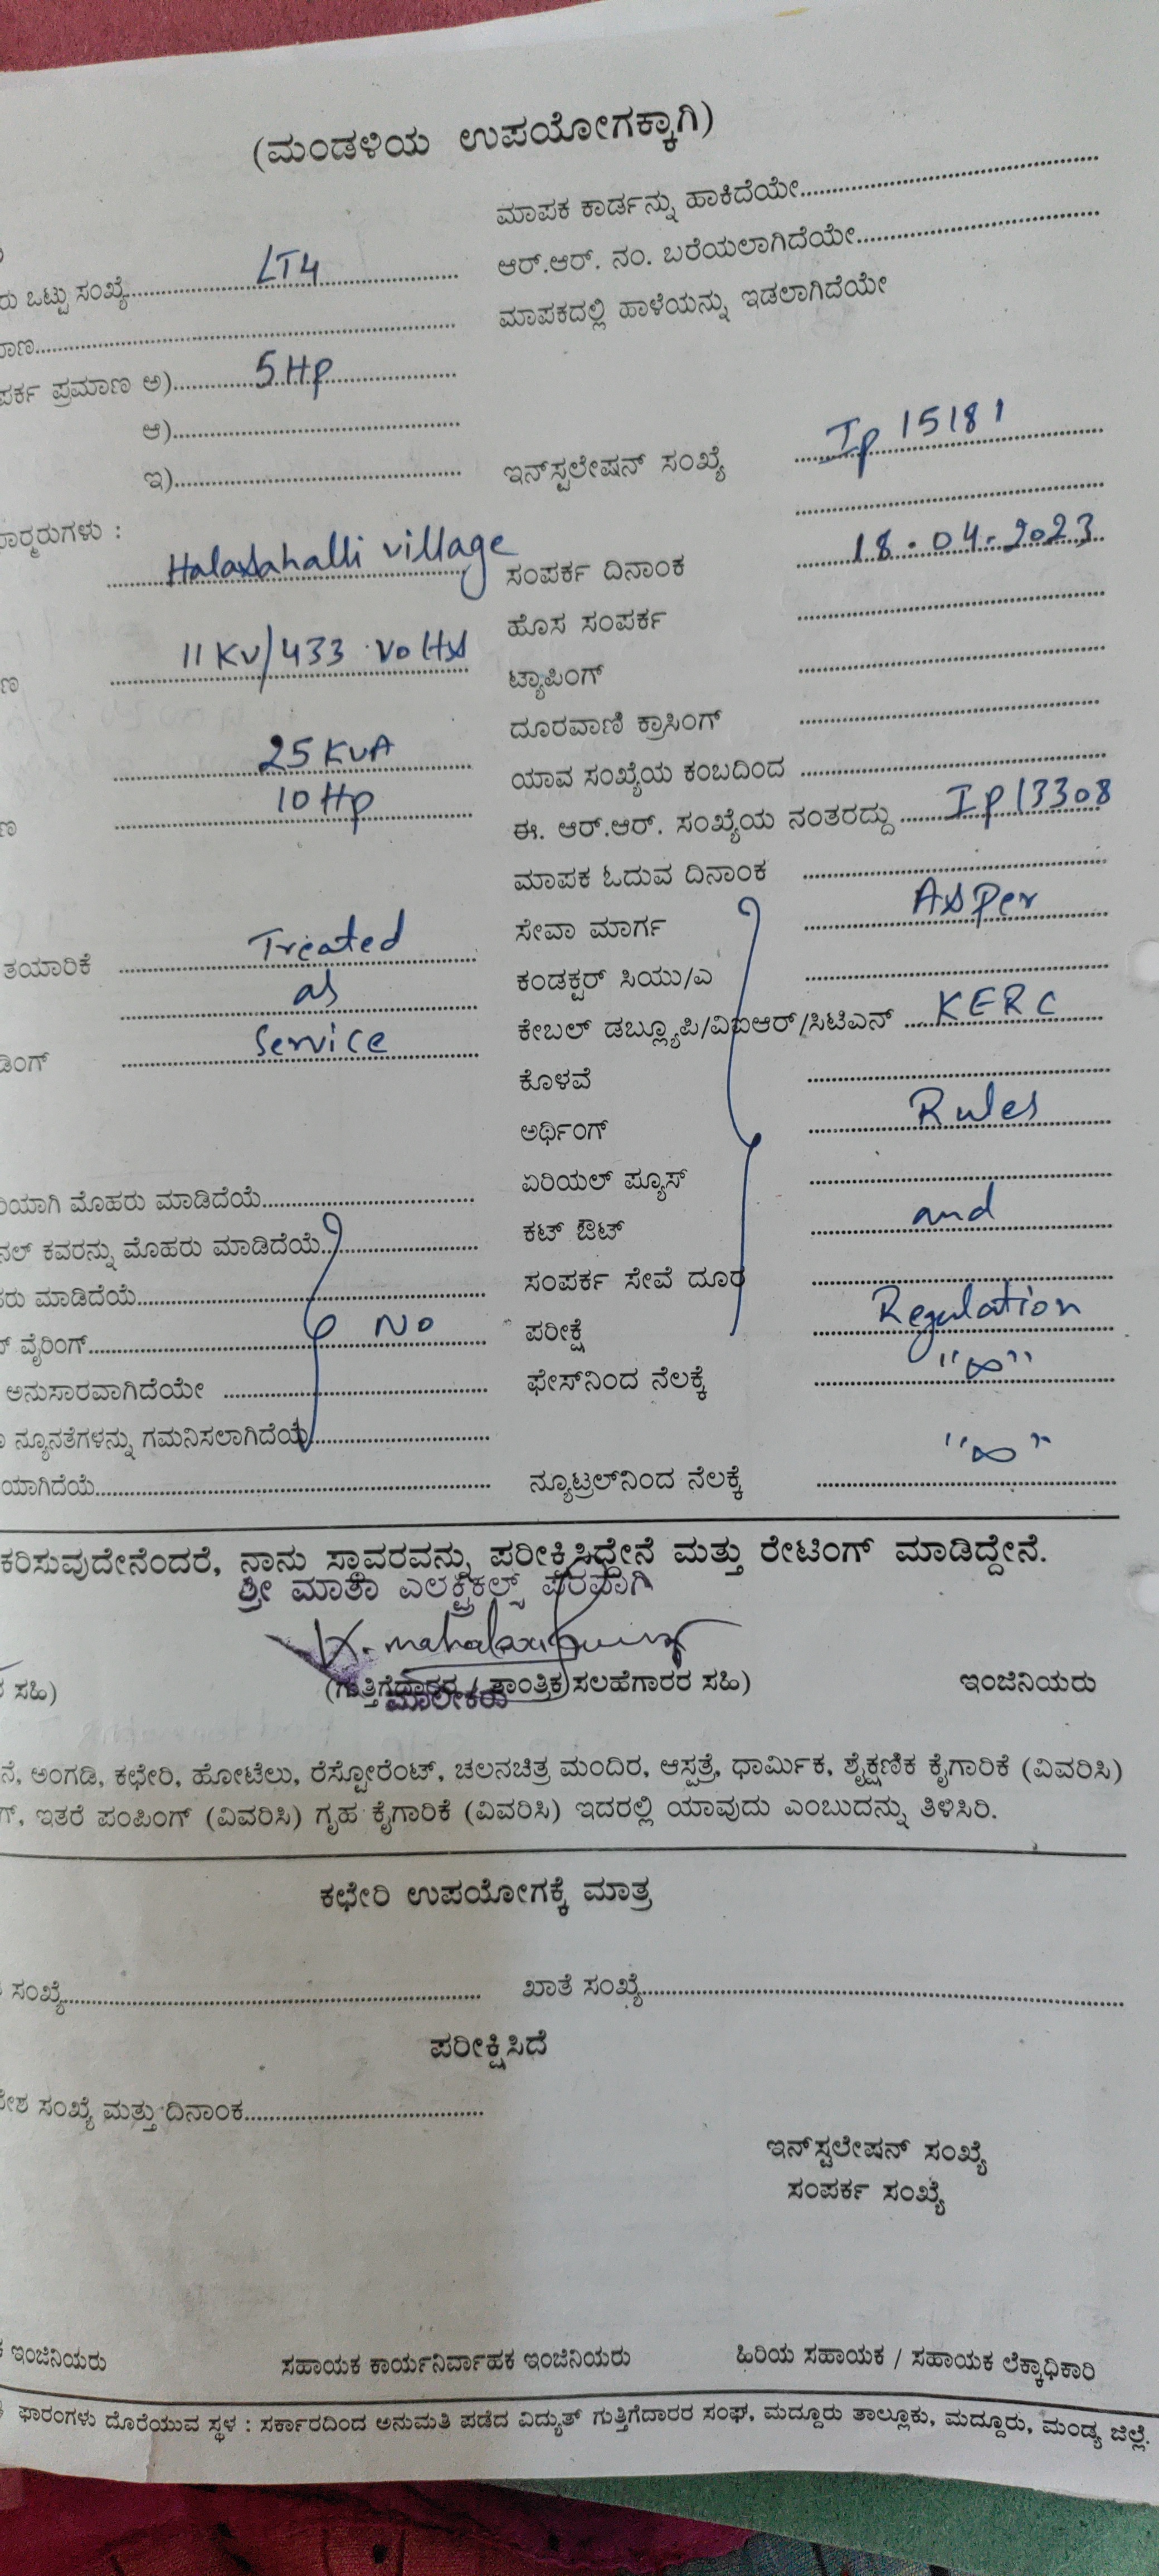 (ಮಂಡಳಿಯ ಉಪಯೋಗಕ್ಕಾಗಿ)
ಮಾಪಕ ಕಾರ್ಡನ್ನು ಹಾಕಿದೆಯೇ
ರು ಒಟ್ಟು ಸಂಖ್ಯೆ LT4 ಆರ್.ಆರ್. ನಂ. ಬರೆಯಲಾಗಿದೆಯೇ
ಮಾಪಕದಲ್ಲಿ ಹಾಳೆಯನ್ನು ಇಡಲಾಗಿದೆಯೇ
ಪರ್ಕ ಪ್ರಮಾಣ ಅ) 5 Hp
ಆ)
ಇ) ಇನ್‌ಸ್ಟಲೇಷನ್ ಸಂಖ್ಯೆ Ip 15181
ಫಾರ್ಮರುಗಳು :
Halasahalli village ಸಂಪರ್ಕ ದಿನಾಂಕ 18.04.2023
ಹೊಸ ಸಂಪರ್ಕ
ಣ 11 KV/433 Volts ಟ್ಯಾಪಿಂಗ್
ದೂರವಾಣಿ ಕ್ರಾಸಿಂಗ್
25 KVA ಯಾವ ಸಂಖ್ಯೆಯ ಕಂಬದಿಂದ
ಣ 10 Hp ಈ. ಆರ್.ಆರ್. ಸಂಖ್ಯೆಯ ನಂತರದ್ದು Ip 13308
ಮಾಪಕ ಓದುವ ದಿನಾಂಕ
ತಯಾರಿಕೆ Treated ಸೇವಾ ಮಾರ್ಗ As Per
as ಕಂಡಕ್ಟರ್ ಸಿಯು/ಎ
ಡಿಂಗ್ Service ಕೇಬಲ್ ಡಬ್ಲ್ಯೂಪಿ/ವಿಐಆರ್/ಸಿಟಿಎನ್ KERC
ಕೊಳವೆ
ಅರ್ಥಿಂಗ್ Rules
ರಿಯಾಗಿ ಮೊಹರು ಮಾಡಿದೆಯೆ ಏರಿಯಲ್ ಪ್ಯೂಸ್
ನಲ್ ಕವರನ್ನು ಮೊಹರು ಮಾಡಿದೆಯೆ ಕಟ್ ಔಟ್ and
ಹರು ಮಾಡಿದೆಯೆ ಸಂಪರ್ಕ ಸೇವೆ ದೂರ
ವೈರಿಂಗ್ No ಪರೀಕ್ಷೆ Regulation
ಅನುಸಾರವಾಗಿದೆಯೇ ಫೇಸ್‌ನಿಂದ ನೆಲಕ್ಕೆ "∞"
ನ್ಯೂನತೆಗಳನ್ನು ಗಮನಿಸಲಾಗಿದೆಯೆ
ಯಾಗಿದೆಯೆ ನ್ಯೂಟ್ರಲ್‌ನಿಂದ ನೆಲಕ್ಕೆ "∞"
ಕರಿಸುವುದೇನೆಂದರೆ, ನಾನು ಸ್ಥಾವರವನ್ನು ಪರೀಕ್ಷಿಸಿದ್ದೇನೆ ಮತ್ತು ರೇಟಿಂಗ್ ಮಾಡಿದ್ದೇನೆ.
ಶ್ರೀ ಮಾತಾ ಎಲಕ್ಟ್ರಿಕಲ್ಸ್ ಪರವಾಗಿ
ಸಹಿ) (ಗುತ್ತಿಗೆದಾರರ / ತಾಂತ್ರಿಕ ಸಲಹೆಗಾರರ ಸಹಿ) ಇಂಜಿನಿಯರು
ಮಾಲೀಕರು
ನೆ, ಅಂಗಡಿ, ಕಛೇರಿ, ಹೋಟೆಲು, ರೆಸ್ಟೋರೆಂಟ್, ಚಲನಚಿತ್ರ ಮಂದಿರ, ಆಸ್ಪತ್ರೆ, ಧಾರ್ಮಿಕ, ಶೈಕ್ಷಣಿಕ ಕೈಗಾರಿಕೆ (ವಿವರಿಸಿ)
ಗ್, ಇತರೆ ಪಂಪಿಂಗ್ (ವಿವರಿಸಿ) ಗೃಹ ಕೈಗಾರಿಕೆ (ವಿವರಿಸಿ) ಇದರಲ್ಲಿ ಯಾವುದು ಎಂಬುದನ್ನು ತಿಳಿಸಿರಿ.
ಕಛೇರಿ ಉಪಯೋಗಕ್ಕೆ ಮಾತ್ರ
ಸಂಖ್ಯೆ ಖಾತೆ ಸಂಖ್ಯೆ
ಪರೀಕ್ಷಿಸಿದೆ
ದೇಶ ಸಂಖ್ಯೆ ಮತ್ತು ದಿನಾಂಕ
ಇನ್‌ಸ್ಟಲೇಷನ್ ಸಂಖ್ಯೆ
ಸಂಪರ್ಕ ಸಂಖ್ಯೆ
ಇಂಜಿನಿಯರು ಸಹಾಯಕ ಕಾರ್ಯನಿರ್ವಾಹಕ ಇಂಜಿನಿಯರು ಹಿರಿಯ ಸಹಾಯಕ / ಸಹಾಯಕ ಲೆಕ್ಕಾಧಿಕಾರಿ
ಫಾರಂಗಳು ದೊರೆಯುವ ಸ್ಥಳ : ಸರ್ಕಾರದಿಂದ ಅನುಮತಿ ಪಡೆದ ವಿದ್ಯುತ್ ಗುತ್ತಿಗೆದಾರರ ಸಂಘ, ಮದ್ದೂರು ತಾಲ್ಲೂಕು, ಮದ್ದೂರು, ಮಂಡ್ಯ ಜಿಲ್ಲೆ.